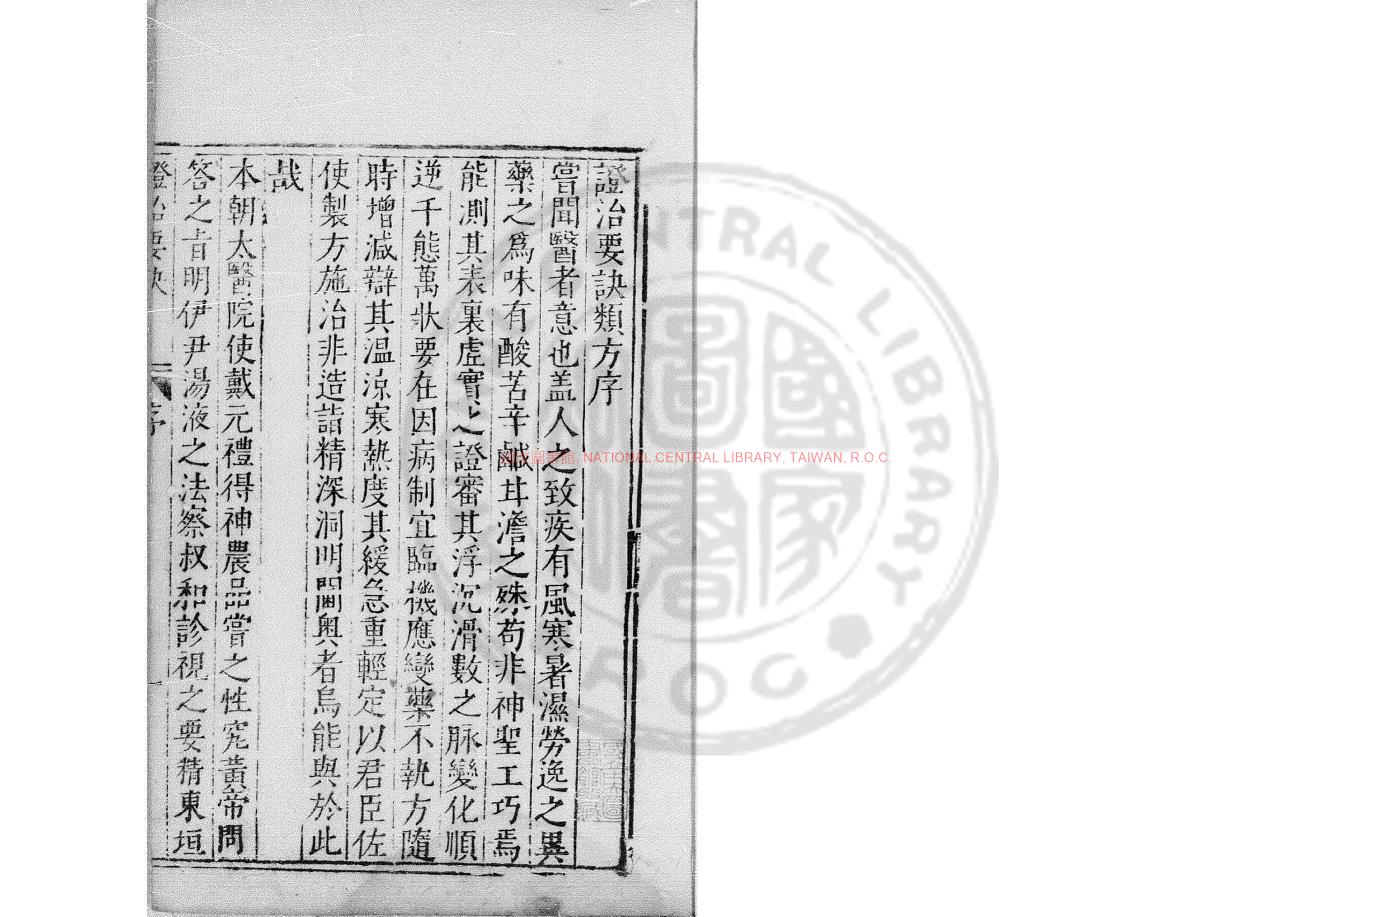 證治要訣類方序
嘗聞醫者意也盖人之致疾有風寒暑濕勞逸之異
藥之爲味有酸苦辛鹹甘澹之殊苟非神聖工巧焉
能測其表裏虛實之證審其浮沉滑數之脉變化順
逆千態萬狀要在因病制宜臨機應變藥不執方隨
時增減辯其温涼寒熱度其緩急重輕定以君臣佐
使製方施治非造詣精深洞明閫奥者烏能與於此
哉
本朝太醫院使戴元禮得神農品嘗之性究黃帝問
答之旨明伊尹湯液之法察叔和診視之要精東垣
證治要訣
序
一
國家圖書館, NATIONAL CENTRAL LIBRARY, TAIWAN, R.O.C.